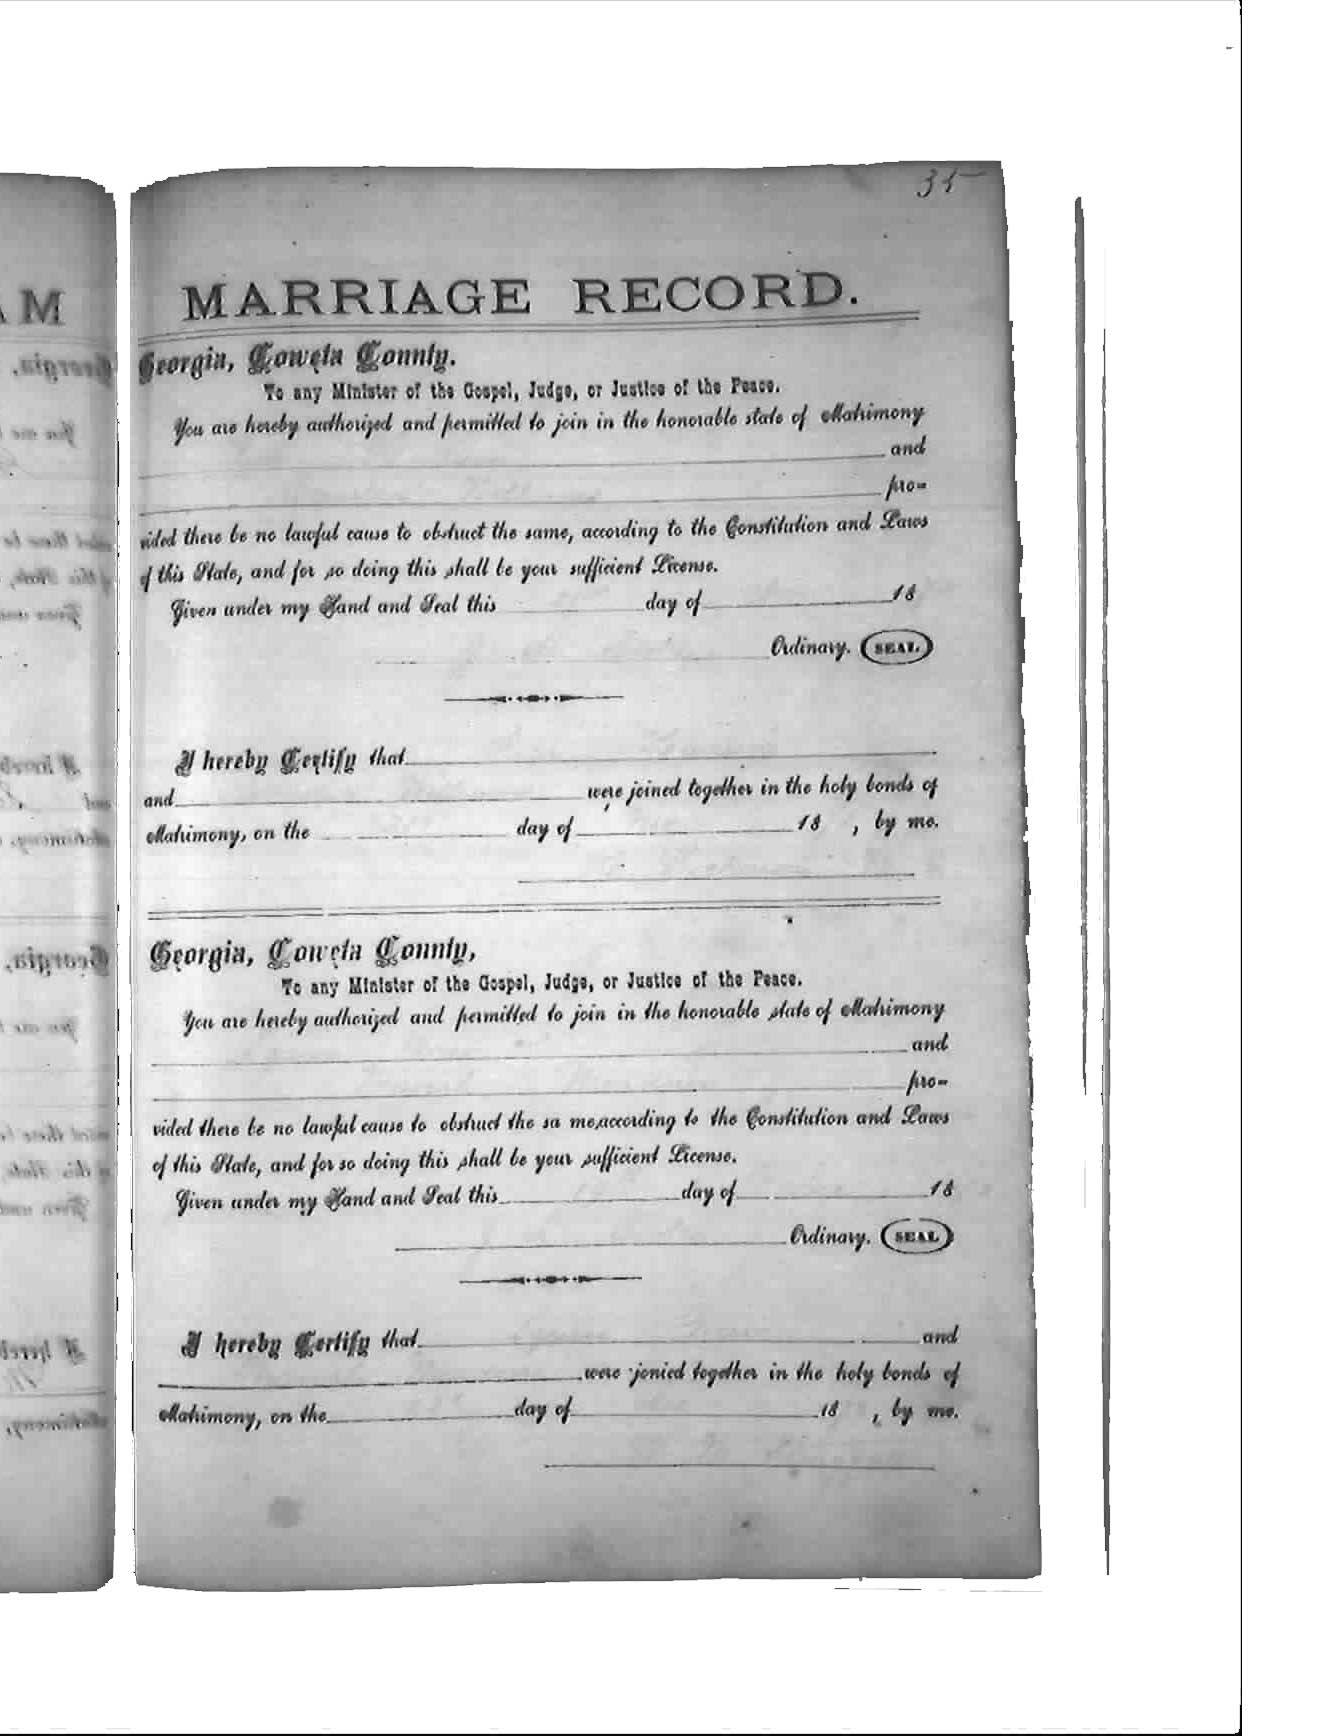 35
MARRIAGE RECORD.
Georgia, Coweta County.
To any Minister of the Gospel, Judge, or Justice of the Peace.
You are hereby authorized and permitted to join in the honorable state of Matrimony
and
pro-
vided there be no lawful cause to obstruct the same, according to the Constitution and Laws
of this State, and for so doing this shall be your sufficient License.
Given under my Hand and Seal this day of 18
Ordinary. SEAL.
I hereby Certify that
and were joined together in the holy bonds of
Matrimony, on the day of 18 , by me.
Georgia, Coweta County,
To any Minister of the Gospel, Judge, or Justice of the Peace.
You are hereby authorized and permitted to join in the honorable state of Matrimony
and
pro-
vided there be no lawful cause to obstruct the sa me,according to the Constitution and Laws
of this State, and for so doing this shall be your sufficient License.
Given under my Hand and Seal this day of 18
Ordinary. SEAL
I hereby Certify that and
were jonied together in the holy bonds of
Matrimony, on the day of 18 , by me.